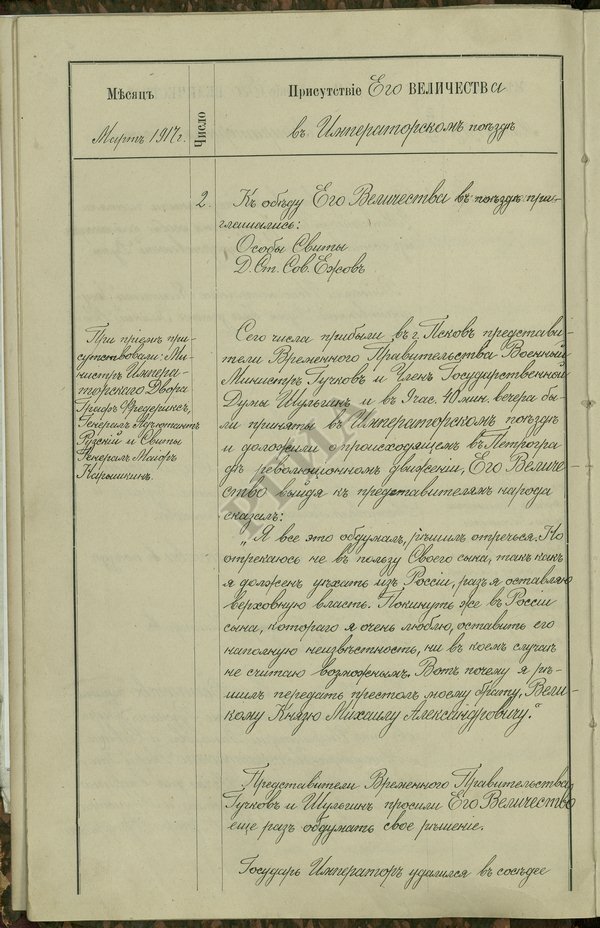 Мѣсяцъ
Мартъ 1917 г.
Число
Присутствіе Его ВЕЛИЧЕСТВа
въ Императорскомъ поѣздѣ
2.
Къ обѣду Его Величества въ поѣздѣ при-
глашались:
Особы Свиты
Д. Ст. Сов. Ежовъ
При пріемѣ при-
сутствовали: Ми-
нистръ Импера-
торскаго Двора
Графъ Фредериксъ,
Генералъ Адъютантъ
Рузскій и Свиты
Генералъ Маіоръ
Нарышкинъ.
Сего числа прибыли въ г. Псковъ представи-
тели Временного Правительства Военный
Министръ Гучковъ и Членъ Государственной
Думы Шульгинъ и въ 9 час. 40 мин. вечера бы-
ли приняты въ Императорскомъ поѣздѣ
и доложили о происходящемъ въ Петрогра-
дѣ революціонномъ движеніи, Его Величе-
ство выйдя къ представителямъ народа
сказалъ:
„Я все это обдумалъ, рѣшилъ отречься. Но
отрекаюсь не въ пользу Своего сына, такъ какъ
я долженъ уѣхать изъ Россіи, разъ я оставляю
верховную власть. Покинуть же въ Россіи
сына, котораго я очень люблю, оставить его
наполную неизвѣстность, ни въ коемъ случаѣ
не считаю возможнымъ. Вотъ почему я рѣ-
шилъ передать престолъ моему брату, Вели-
кому Князю Михаилу Александровичу."
Представители Временного Правительства
Гучковъ и Шульгинъ просили Его Величество
еще разъ обдумать свое рѣшеніе.
Государь Императоръ удалился въ сосѣдее
РГИА